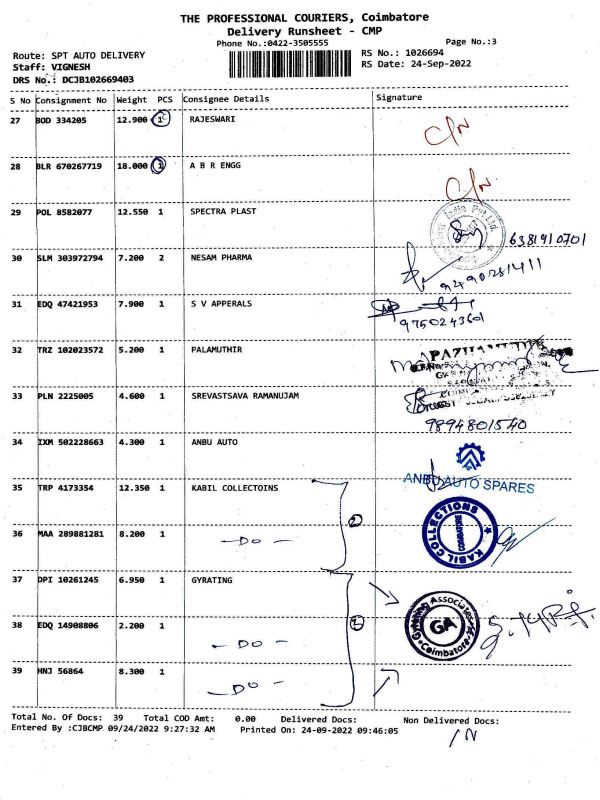 THE PROFESSIONAL COURIERS, Coimbatore
Delivery Runsheet - CMP
Phone No.:0422-3505555 Page No.:3
Route: SPT AUTO DELIVERY RS No.: 1026694
Staff: VIGNESH RS Date: 24-Sep-2022
DRS No.: DCJB102669403
S No Consignment No Weight PCS Consignee Details Signature
27 BOD 334205 12.900 1 RAJESWARI C/N
28 BLR 670267719 18.000 1 A B R ENGG C/N
29 POL 8582077 12.550 1 SPECTRA PLAST India Pvt Ltd 6381910701
30 SLM 303972794 7.200 2 NESAM PHARMA 9490281411
31 EDQ 47421953 7.900 1 S V APPERALS 9750243601
32 TRZ 102023572 5.200 1 PALAMUTHIR
33 PLN 2225005 4.600 1 SREVASTSAVA RAMANUJAM 9894801540
34 IXM 502228663 4.300 1 ANBU AUTO ANBU AUTO SPARES
35 TRP 4173354 12.350 1 KABIL COLLECTOINS
36 MAA 289881281 8.200 1 - DO - 2 KABIL COLLECTIONS COIMBATORE
37 DPI 10261245 6.950 1 GYRATING
38 EDQ 14908806 2.200 1 - DO - Gyrating Associates GA Coimbatore
39 HNJ 56864 8.300 1 - DO -
Total No. Of Docs: 39 Total COD Amt: 0.00 Delivered Docs: Non Delivered Docs:
Entered By :CJBCMP 09/24/2022 9:27:32 AM Printed On: 24-09-2022 09:46:05